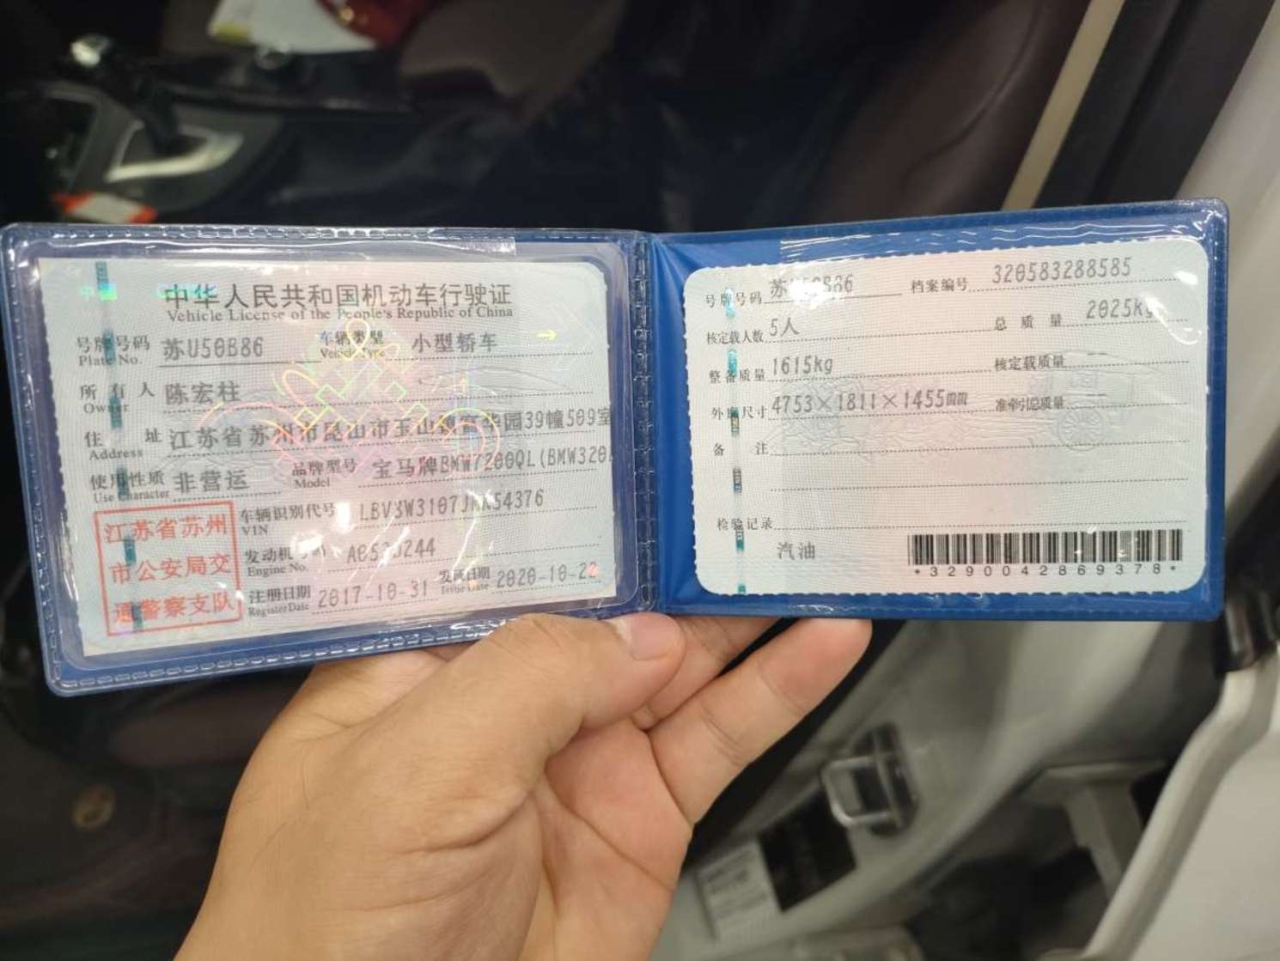 中华人民共和国机动车行驶证
Vehicle License of the People's Republic of China
号牌号码 苏U50B86 车辆类型 小型轿车
Plate No. Vehicle Type
所有人 陈宏柱
Owner
住址 江苏省苏州市昆山市玉山镇 华园39幢509室
Address
使用性质 非营运 品牌型号 宝马牌BMW7200QL(BMW320
Use Character Model
江苏省苏州
市公安局交
通警察支队
车辆识别代号
VIN
发动机号码
Engine No.
注册日期 2017-10-31 发证日期 2020-10-22
Register Date Issue Date
号牌号码 苏U50B86 档案编号 320583288585
核定载人数 5人 总质量 2025kg
整备质量 1615kg 核定载质量
外廓尺寸 4753×1811×1455mm 准牵引总质量
备注
检验记录
汽油
*3290042869378*